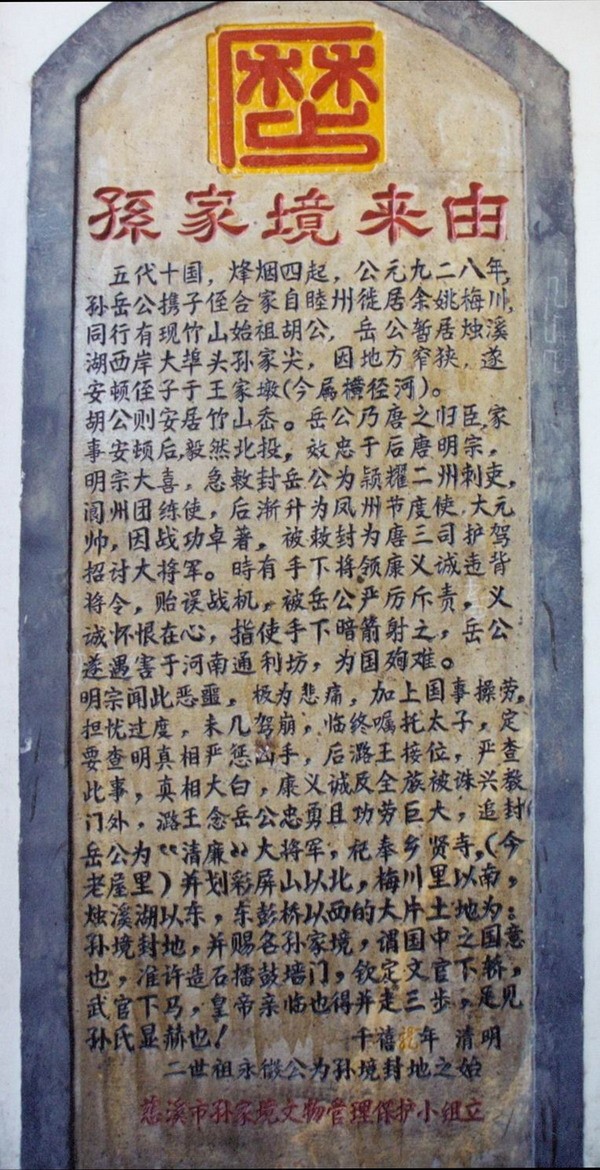 孫家境来由
五代十国，烽烟四起，公元九二八年，
孙岳公携子侄合家自睦州徙居余姚梅川，
同行有现竹山始祖胡公，岳公暂居烛溪
湖西岸大埠头孙家尖，因地方窄狭，遂
安顿侄子于王家墩(今属横径河)。
胡公则安居竹山岙。岳公乃唐之归臣，家
事安顿后，毅然北投，效忠于后唐明宗，
明宗大喜，急敕封岳公为颍耀二州刺吏，
阆州团练使，后渐升为凤州节度使，大元
帅，因战功卓著，被敕封为唐三司护驾
招讨大将军。時有手下将领康义诚违背
将令，贻误战机，被岳公严厉斥责，义
诚怀恨在心，指使手下暗箭射之，岳公
遂遇害于河南通利坊，为国殉难。
明宗闻此恶噩，极为悲痛，加上国事操劳，
担忧过度，未几驾崩，临终嘱托太子，定
要查明真相严惩凶手，后潞王接位，严查
此事，真相大白，康义诚及全族被诛兴教
门外，潞王念岳公忠勇且功劳巨大，追封
岳公为“清廉”大将军，祀奉乡贤寺，(今
老屋里)并划彩屏山以北，梅川里以南，
烛溪湖以东，东彭桥以西的大片土地为：
孙境封地，并赐名孙家境，谓国中之国意
也，准许造石擂鼓墙门，钦定文官下轿，
武官下马，皇帝亲临也得并走三步，足见
孙氏显赫也！ 千禧龍年 清明
二世祖永徽公为孙境封地之始
慈溪市孙家境文物管理保护小组立